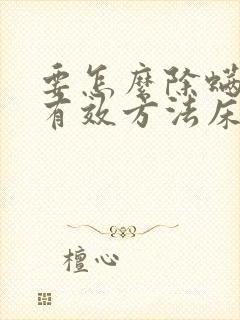 要怎麽除螨
有效方法床
檀心